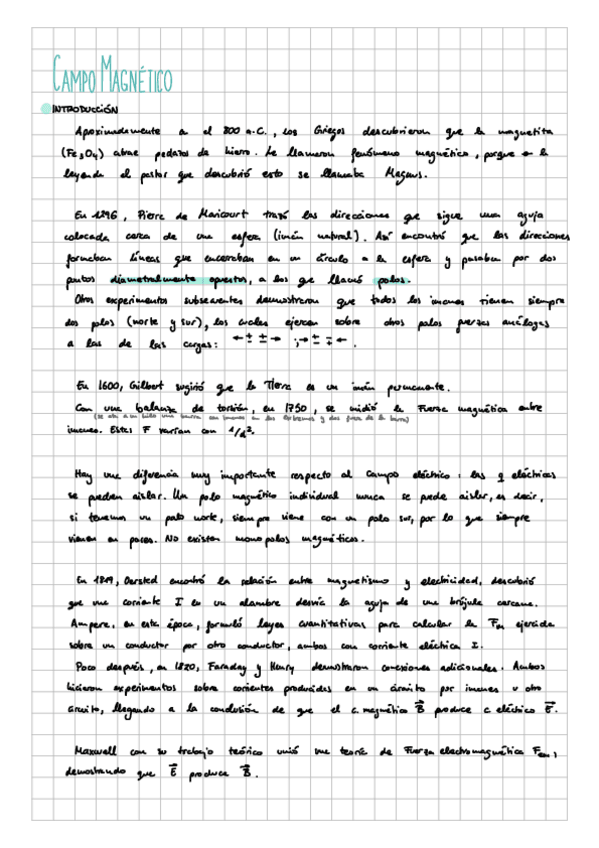 CAMPO MAGNÉTICO
INTRODUCCIÓN
Aproximadamente a el 800 a.C., los Griegos descubrieron que la magnetita
(Fe3O4) atrae pedazos de hierro. Le llamaron fenómeno magnético, porque en la
leyenda el pastor que descubrió esto se llamaba Magnus.
En Pierre de Maricourt trazó las direcciones que sigue una aguja
colocada cerca de una esfera (imán natural). Así encontró que las direcciones
formaban líneas que encerraban en un círculo a la esfera y pasaban por dos
puntos diametralmente opuestos, a los que llamó polos.
Otros experimentos subsecuentes demostraron que todos los imanes tienen siempre
dos polos (norte y sur), los cuales ejercen sobre otros polos fuerzas análogas
a las de las cargas:
En 1600, Gilbert sugirió que la Tierra es un imán permanente.
Con una balanza de torsión, en 1750, se midió la Fuerza magnética entre
(se ata a un hilo una barra con imanes en los extremos y
imanes. Estas F varían con 1/d².
Hay una diferencia muy importante respecto al campo eléctrico: las q eléctricas
se pueden aislar. Un polo magnético individual nunca se puede aislar, es decir,
si tenemos un polo norte, siempre viene con un polo sur, por lo que siempre
vienen en pares. No existen monopolos magnéticos.
En 1819, Oersted encontró la relación entre magnetismo y electricidad, descubrió
que una corriente I en un alambre desvía la aguja de una brújula cercana.
Ampere, en esta época, formuló leyes cuantitativas para calcular la Fm ejercida
sobre un conductor por otro conductor, ambos con corriente eléctrica I.
Poco después, en 1820, Faraday y Henry demostraron conexiones adicionales. Ambos
hicieron experimentos sobre corrientes producidas en un circuito por imanes u otro
circuito, llegando a la conclusión de que el c. magnético B⃗ produce c eléctrico E⃗.
Maxwell con su trabajo teórico unió una teoría de Fuerza electromagnética Fem,
demostrando que E⃗ produce B⃗.